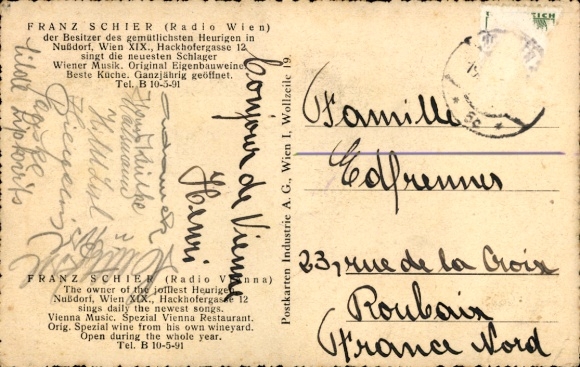 FRANZ SCHIER (Radio Wien)
der Besitzer des gemütlichsten Heurigen in
Nußdorf, Wien XIX., Hackhofergasse 12
singt die neuesten Schlager
Wiener Musik. Original Eigenbauweine.
Beste Küche. Ganzjährig geöffnet.
Tel. B 10-5-91
Bonjour de Vienne
Henri
FRANZ SCHIER (Radio Vienna)
The owner of the jolliest Heurigen
Nußdorf, Wien XIX., Hackhofergasse 12
sings daily the newest songs.
Vienna Music. Spezial Vienna Restaurant.
Orig. Spezial wine from his own wineyard.
Open during the whole year.
Tel. B 10-5-91
Postkarten Industrie A. G., Wien I, Wollzeile 19.
Famille
23, rue de la Croix
Roubaix
France Nord